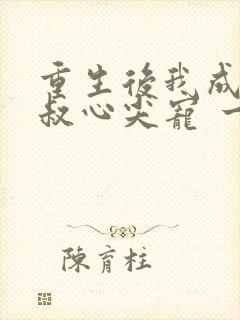 重生後我成
叔心尖寵 一
陳育柱